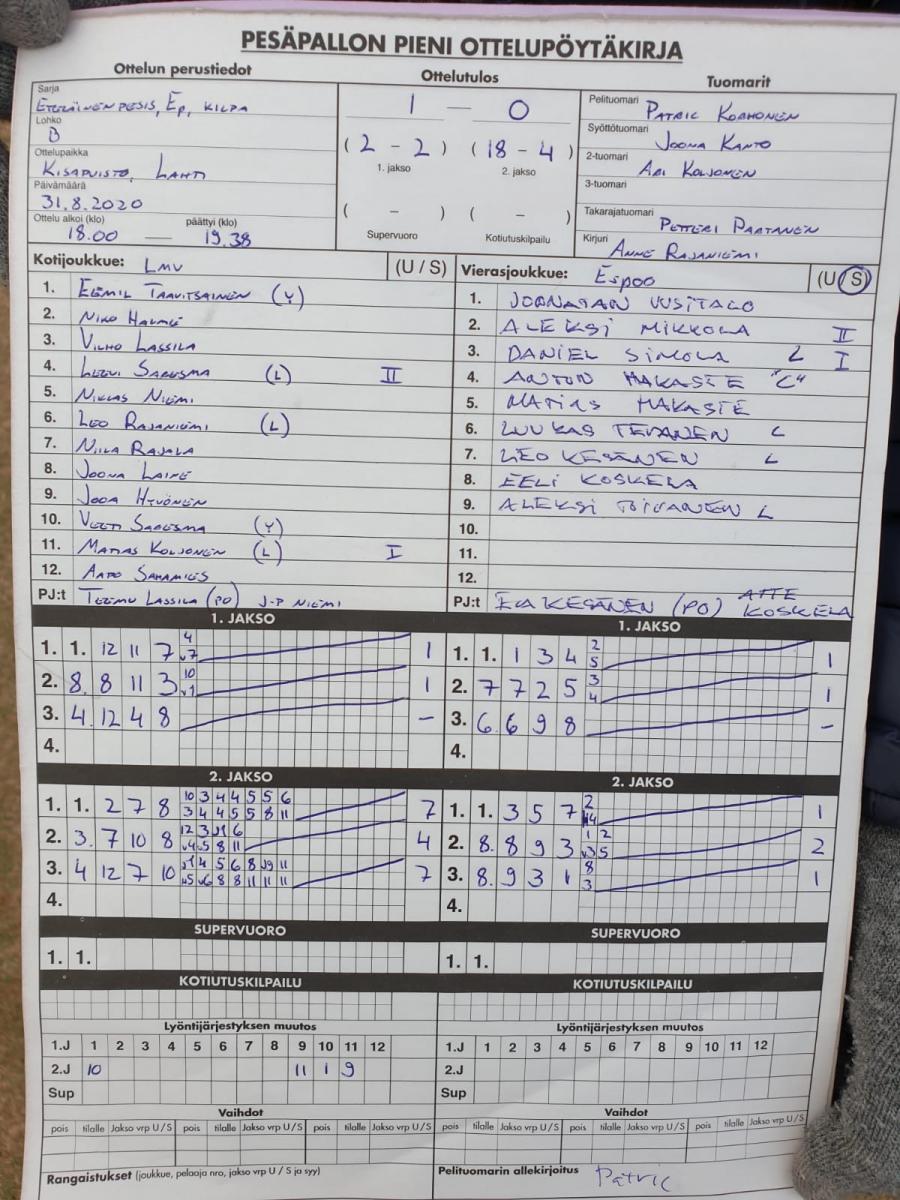 PESÄPALLON PIENI OTTELUPÖYTÄKIRJA
Ottelun perustiedot
Sarja
ETELÄINEN PESIS, EP, KILPA
Lohko
B
Ottelupaikka
KISAPUISTO, LAHTI
Päivämäärä
31.8.2020
Ottelu alkoi (klo) päättyi (klo)
18.00 — 19.38
Ottelutulos
1 — 0
(2 - 2) (18 - 4)
1. jakso 2. jakso
( - ) ( - )
Supervuoro Kotiutuskilpailu
Tuomarit
Pelituomari PATRIC KORHONEN
Syöttötuomari JOONA KANTO
2-tuomari ARI KOLJONEN
3-tuomari
Takarajatuomari PETTERI PARTANEN
Kirjuri ANNE RAJANIEMI
Kotijoukkue: LMV (U / S)
1. EEMIL TAAVITSAINEN (Y)
2. NIKO
3. VILHO LASSILA
4. LEEVI SARESMA (L) II
5. NIKLAS NIEMI
6. LEO RAJANIEMI (L)
7. NIILA RAJALA
8. JOONA LAINE
9. JOOA HYVÖNEN
10. VEETI SARESMA (Y)
11. MATIAS KOLJONEN (L) I
12. AAPO SAHAMIES
PJ:t TEEMU LASSILA (PO) J-P NIEMI
Vierasjoukkue: ESPOO (U/S)
1. JOONATAN UUSITALO
2. ALEKSI MIKKOLA II
3. DANIEL SIMOLA L I
4. ANTON HAKASTE "C"
5. MATIAS HAKASTE
6. LUUKAS TEVANEN L
7. LEO KESÄNEN L
8. EELI KOSKELA
9. ALEKSI TOIVANEN L
10.
11.
12.
PJ:t ESA KESÄNEN (PO) ATTE KOSKELA
1. JAKSO
1. 1. 12 11 7 4 v7 1
2. 8. 8 11 3 10 v1 1
3. 4. 12 4 8 –
4.
1. JAKSO
1. 1. 1 3 4 2 5 1
2. 7 7 2 5 3 4 1
3. 6. 6 9 8 –
4.
2. JAKSO
1. 1. 2 7 8 10 3 4 4 5 5 6 7
3 4 4 5 5 8 11
2. 3. 7 10 8 12 3 6 4
v4 5 8 11
3. 4 12 7 10 4 5 6 8 11 7
v5 v6 8 8 11 11 11
4.
2. JAKSO
1. 1. 3 5 7 2 1
2. 8. 8 9 3 1 2 2
v3 5
3. 8. 9 3 1 8 1
3
4.
SUPERVUORO
1. 1.
SUPERVUORO
1. 1.
KOTIUTUSKILPAILU
KOTIUTUSKILPAILU
Lyöntijärjestyksen muutos
1.J 1 2 3 4 5 6 7 8 9 10 11 12
2.J 10 11 1 9
Sup
Lyöntijärjestyksen muutos
1.J 1 2 3 4 5 6 7 8 9 10 11 12
2.J
Sup
Vaihdot
pois tilalle Jakso vrp U / S pois tilalle Jakso vrp U / S pois tilalle Jakso vrp U / S
Vaihdot
pois tilalle Jakso vrp U / S pois tilalle Jakso vrp U / S pois tilalle Jakso vrp U / S
Rangaistukset (joukkue, pelaaja nro, jakso vrp U / S ja syy)
Pelituomarin allekirjoitus
Patric